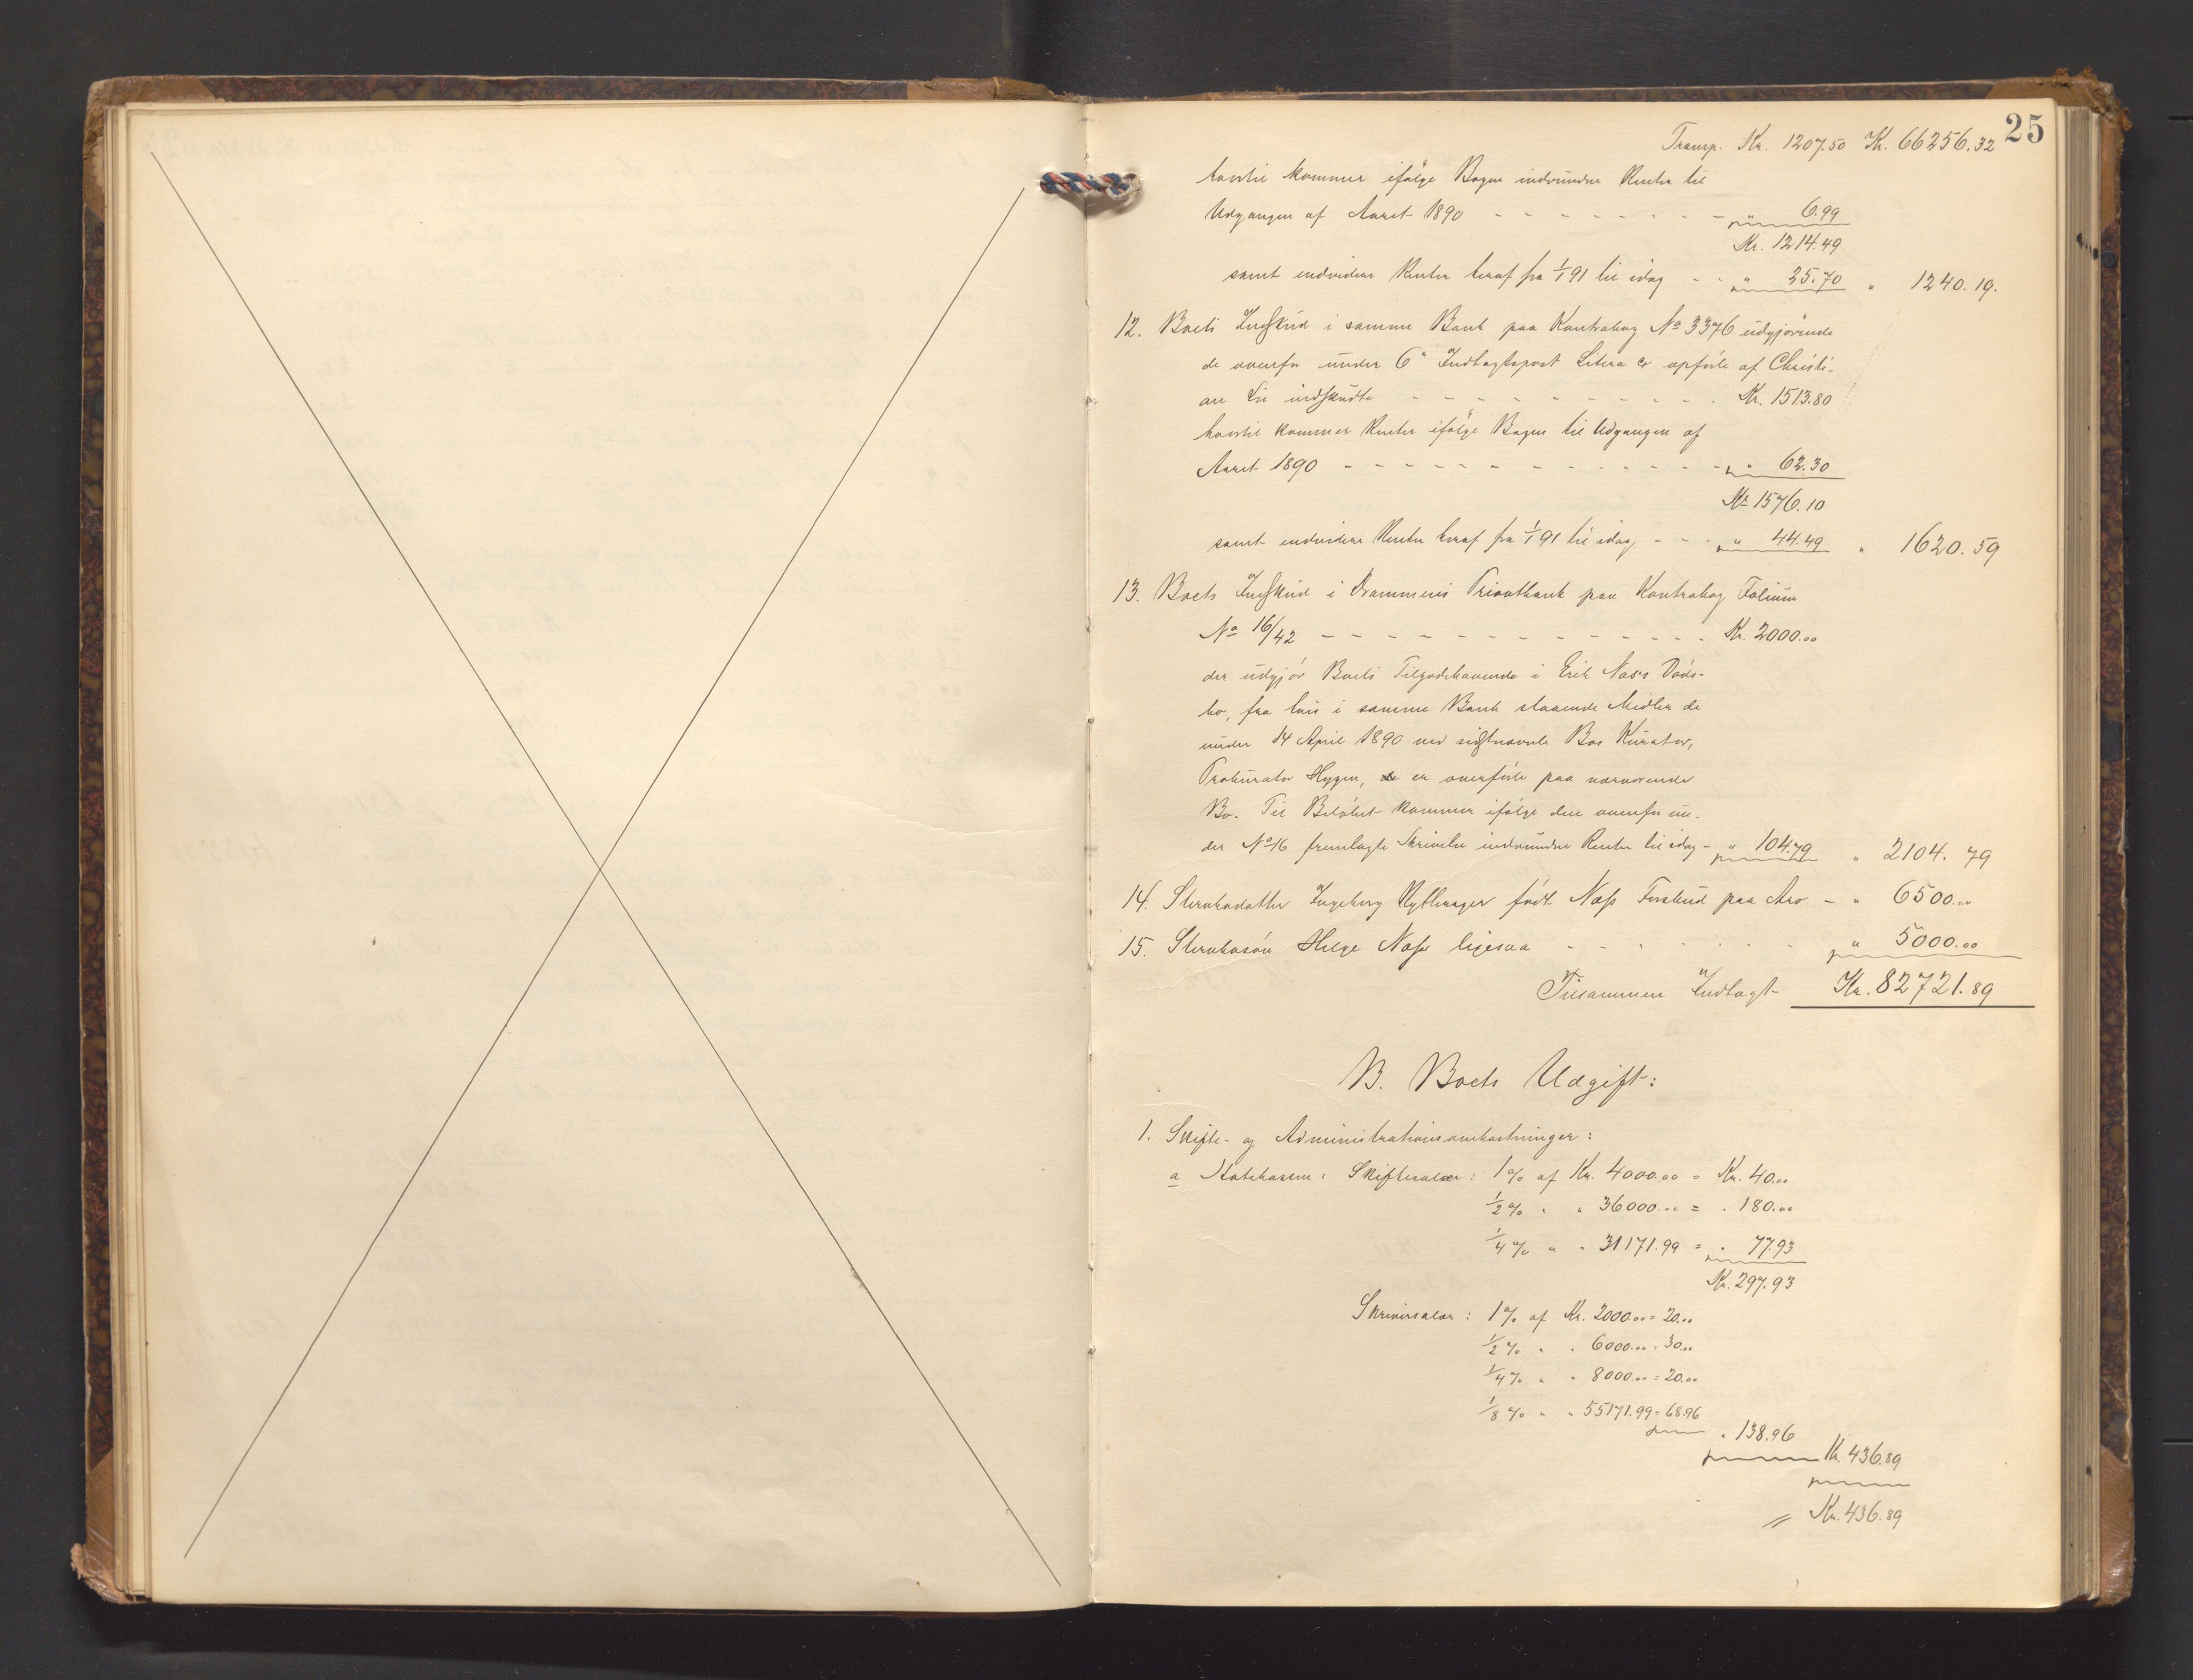 25
Transp. Kr. 1207.50 Kr. 66256.32
hvortil kommer ifølge Bogen indvundne Renter til
Udgangen af Aaret 1890 - - - - - - - - " 6.99
Kr. 1214.49
samt endvidere Renter heraf fra 1/1 91 til idag - - " 25.70 " 1240.19.
12. Boets Indskud i samme Bank paa Kontrabog No 3376 udgjørende
de ovenfor under 6te Indtægtspost Litera c opførte af Christi-
an Lie indskudte - - - - - - - - - Kr. 1513.80
hvortil kommer Renter ifølge Bogen til Udgangen af
Aaret 1890 - - - - - - - - - - - - " 62.30
Kr. 1576.10
samt endvidere Renter heraf fra 1/1 91 til idag - - - " 44.49 " 1620.59
13. Boets Indskud i Drammens Privatbank paa Kontrabog Folium
No 16/42 - - - - - - - - - - - - Kr. 2000.00
der udgjør Boets Tilgodehavende i Erik Næss Døds-
bo, fra hvis i samme Bank staaende Midler de
under 14 April 1890 ved sidstnævnte Bos Kurator,
Prokurator Hygen, er overførte paa nærværende
Bo. Til Beløbet kommer ifølge den ovenfor un-
der No 16 fremlagte Skrivelse indvundne Renter til idag - " 104.79 " 2104.79
14. Stervbodatter Ingeborg Nytbrager født Næss Forskud paa Arv - " 6500.00
15. Stervbosøn Helge Næss ligesaa - - - - - - - " 5000.00
Tilsammen Indtægt Kr. 82721.89
B. Boets Udgift:
1. Skifte- og Administrationsomkostninger:
a Statskassen: Skiftesalær: 1% af Kr. 4000.00 = Kr. 40.00
1/2 % " " 36000.00 = " 180.00
1/4 % " " 31171.99 = " 77.93
Kr. 297.93
Skriversalær: 1% af Kr. 2000.00 = 20.00
1/2 % " " 6000.00 = 30.00
1/4 % " " 8000.00 = 20.00
1/8 % " " 55171.99 = 68.96
" 138.96
Kr. 436.89
Kr. 436.89